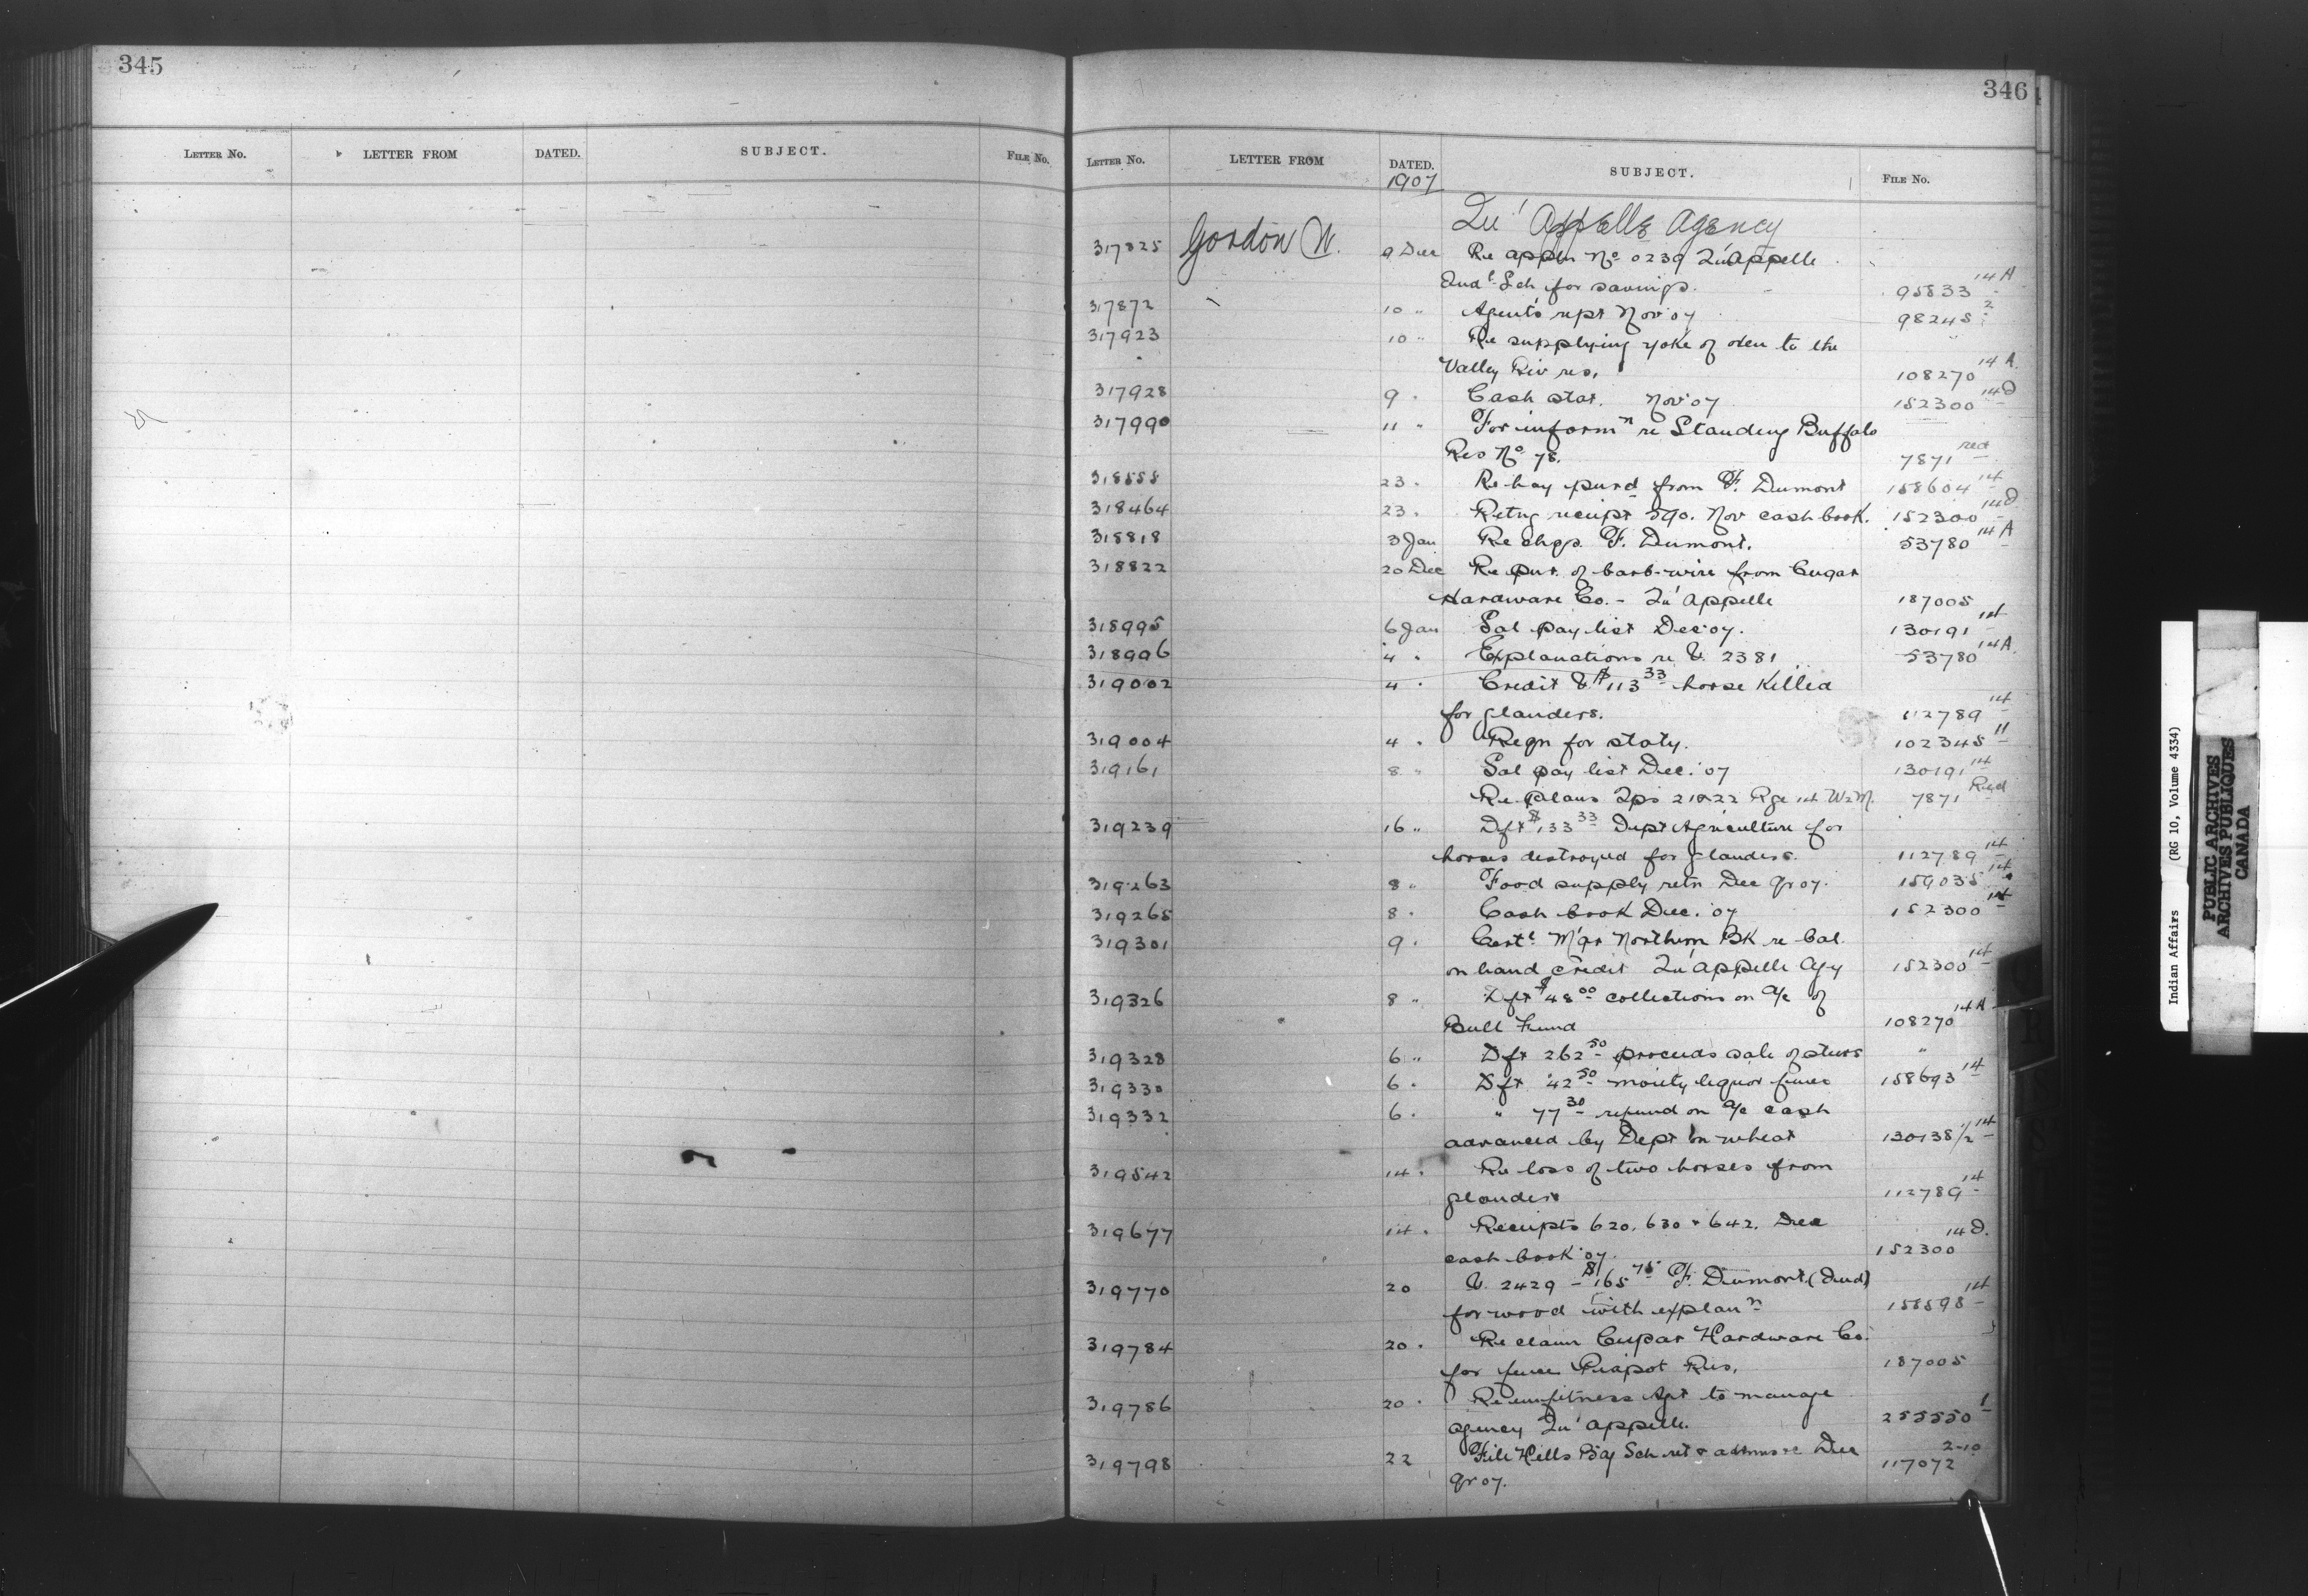 345
LETTER NO. LETTER FROM DATED. SUBJECT. FILE No.
346
LETTER NO. LETTER FROM DATED. SUBJECT. FILE No.
1907
Qu' Appelle Agency
317825 Gordon W. 9 Dec Re appln No 0239 Qu'Appelle
Indl Sch for savings. 95833 14A
317872 10 " Agent's rept Nov '07 98245 2
317923 10 " Re supplying yoke of oxen to the
Valley Riv res. 108270 14A
317928 9 " Cash stat. Nov '07 152300 14D
317990 11 " For informn re Standing Buffalo
Res No 78. 7871 red
318555 23 " Re hay purd from F. Dumont 158604 14
318464 23 " Retng receipt 590. Nov cash book. 152300 14D
318818 3 Jan Re chgs. F. Dumont. 53780 14A
318822 20 Dec Re pur. of barb-wire from Cupar
Hardware Co. - Qu'Appelle 187005
318995 6 Jan Sal pay list Dec '07. 130191 14
318996 4 " Explanations re V. 2381 53780 14A
319002 4 " Credit V $113 33 horse killed
for glanders. 112789 14
319004 4 " Reqn for staty. 102345 11
319161 8 " Sal pay list Dec. '07 130191 14
Re plans Tps 21&22 Rge 14 W2M. 7871 Red
319239 16 " Dft $133 33 Dept Agriculture for
horses destroyed for glanders. 112789 14
319263 8 " Food supply retn Dec qr 07. 159035 14
319265 8 " Cash book Dec. '07 152300 14
319301 9 " Certe. M'gr Northern BK re bal.
on hand credit Qu'appelle Agy 152300 14
319326 8 " Dft $48 00 collections on a/c of
Bull Fund 108270 14A
319328 6 " Dft 262 50 proceeds sale of steers "
319330 6 " Dft 42 50 moiety liquor fines 158693 14
319332 6 " " 77 30 refund on a/c cash
advanced by Dept on wheat 130138/2 14
319542 14 " Re loss of two horses from
glanders 112789 14
319677 14 " Receipts 620, 630 & 642. Dec
cash book '07. 152300 14D.
319770 20 V. 2429 - $165 75 F. Dumont (Ind)
for wood with explann 158598 14
319784 20 " Re claim Cupar Hardware Co.
for fence Piapot Res. 187005
319786 20 " Re unfitness Agt to manage
agency Qu'appelle. 255550 1
319798 22 File Hills Bdg Sch ret & Dec
qr 07. 117072 2-10
Indian Affairs (RG 10, Volume 4334)
PUBLIC ARCHIVES
ARCHIVES PUBLIQUES
CANADA